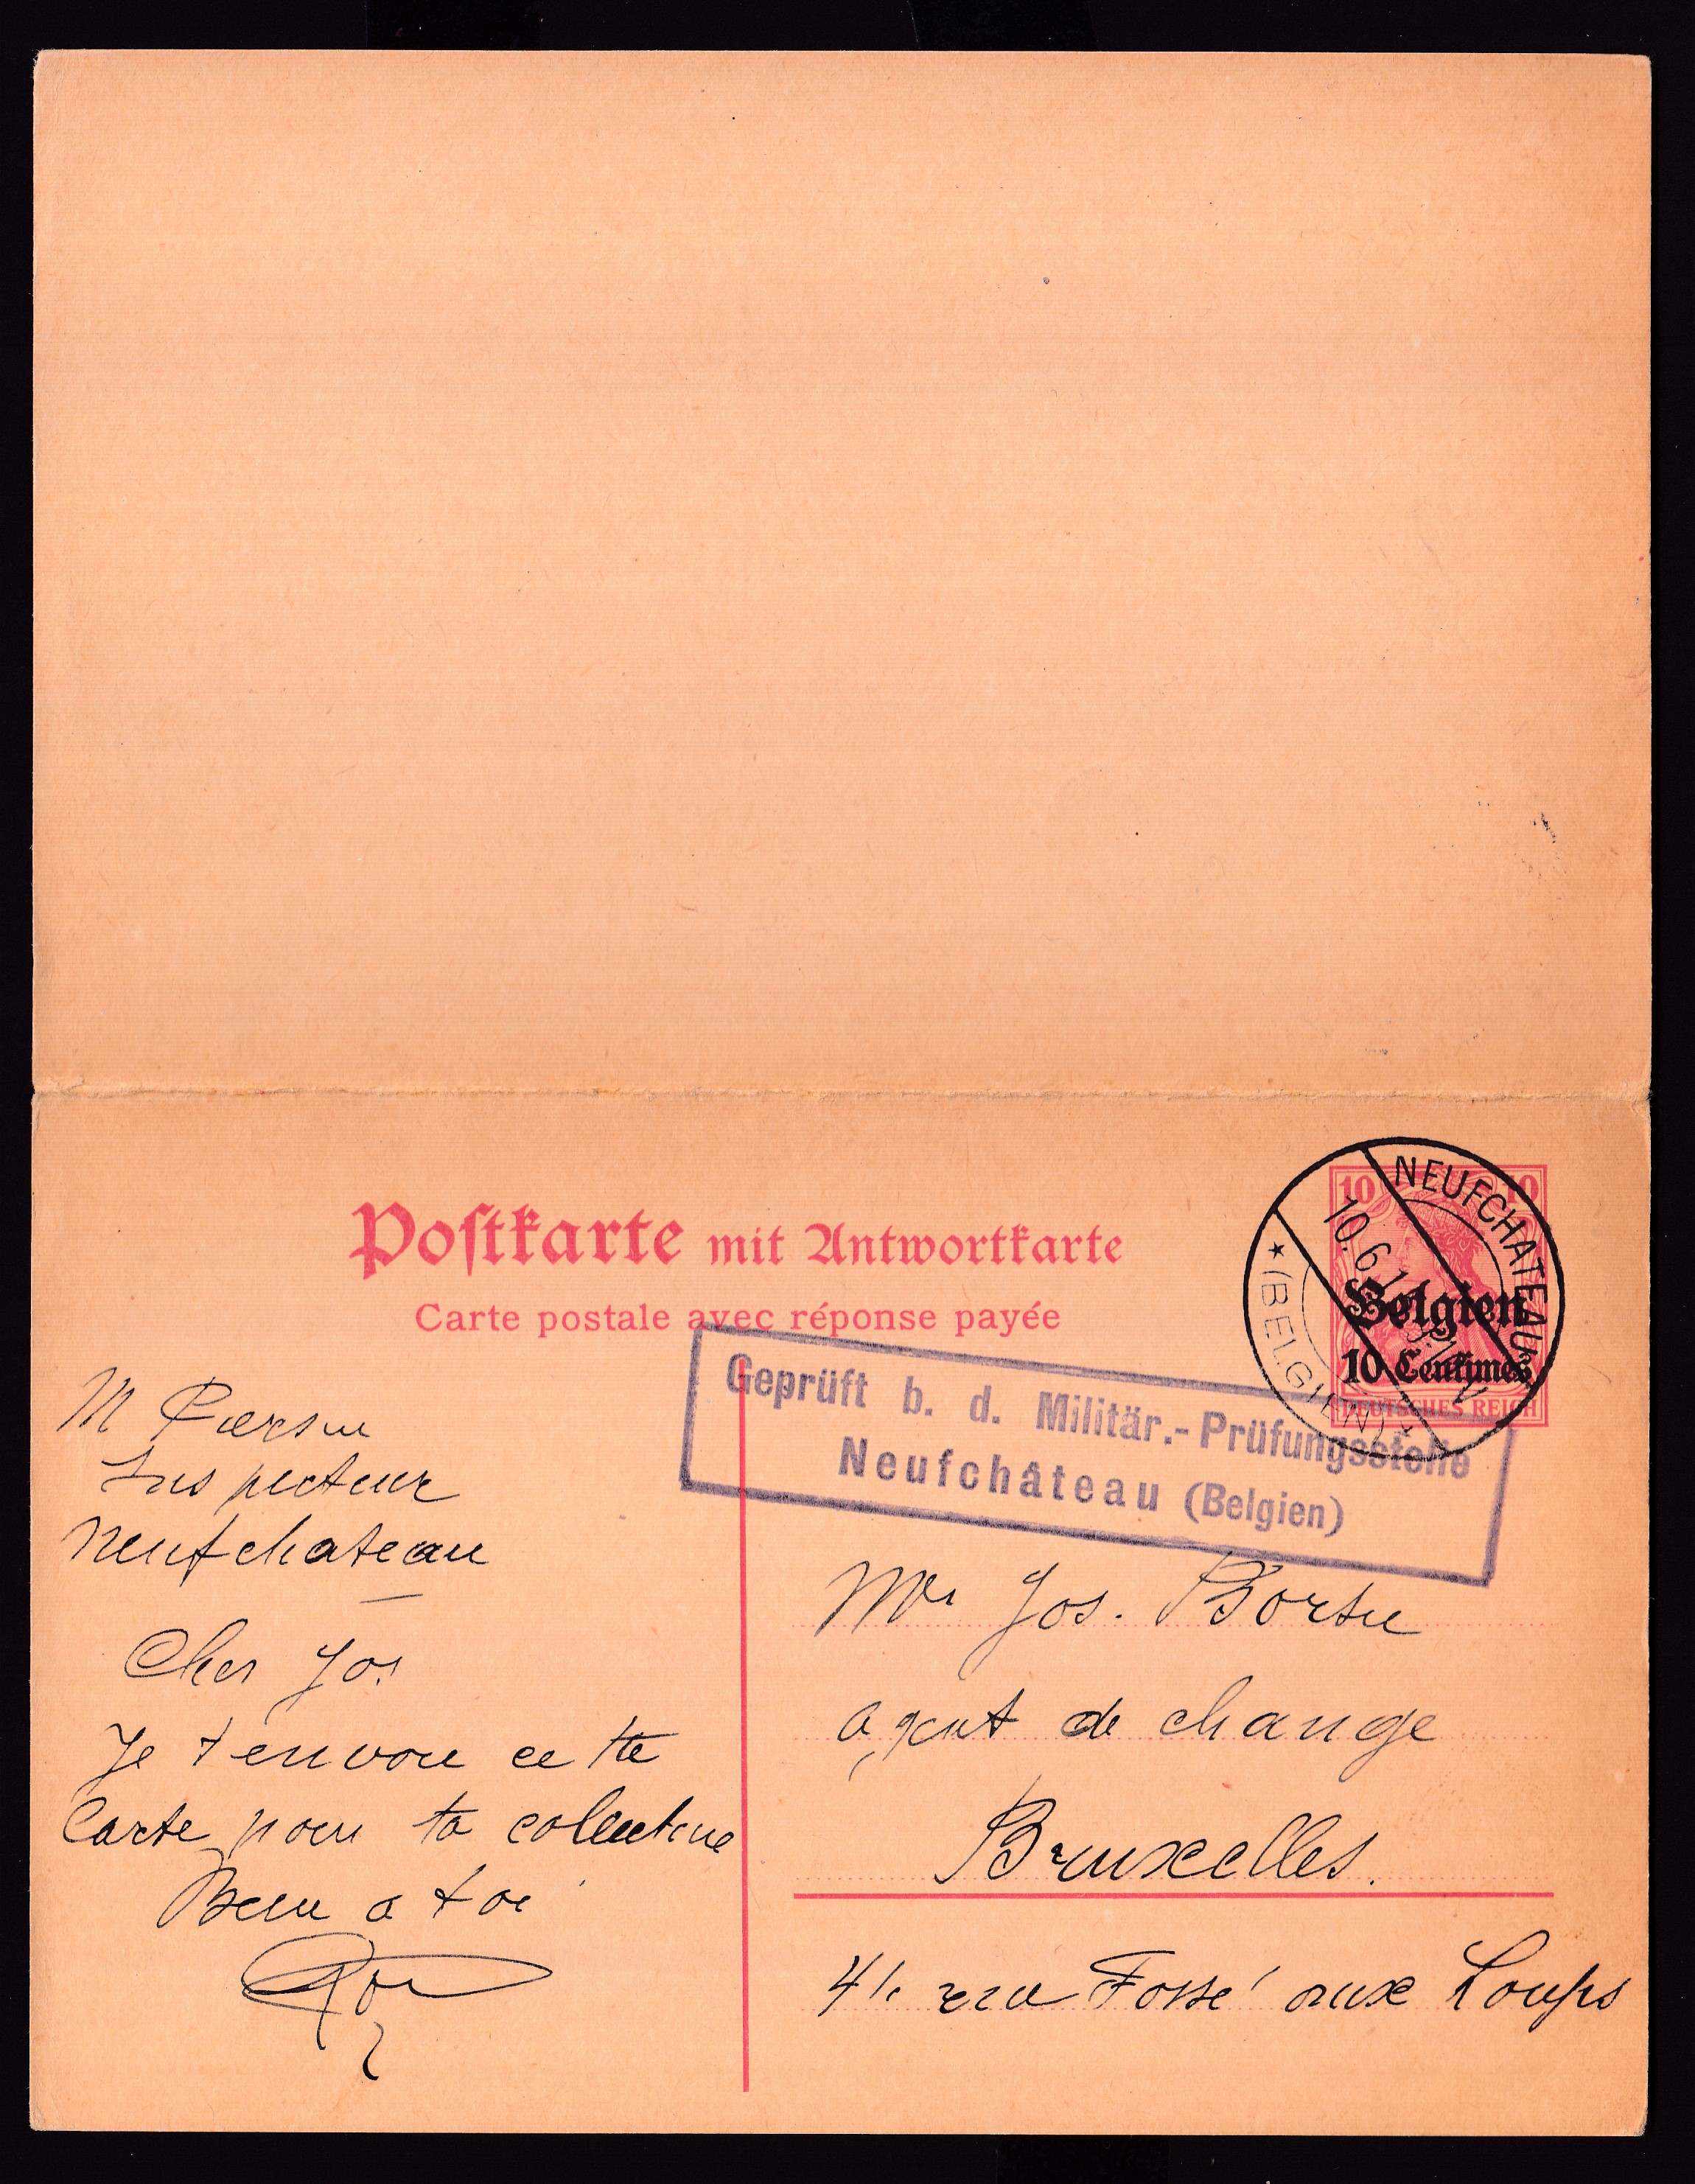 Postkarte mit Antwortkarte
Carte postale avec réponse payée
10 10
Belgien
10 Centimes
DEUTSCHES REICH
NEUFCHATEAU
10.6.1
*(BELGIEN)*
Geprüft b. d. Militär.-Prüfungsstelle
Neufchâteau (Belgien)
M
Inspecteur
Neufchateau
Cher Jos
Je t'envoie cette
Carte pour ta collection
Bien a toi
Mr Jos. Borsu
agent de change
Bruxelles.
rue Fossé aux Loups